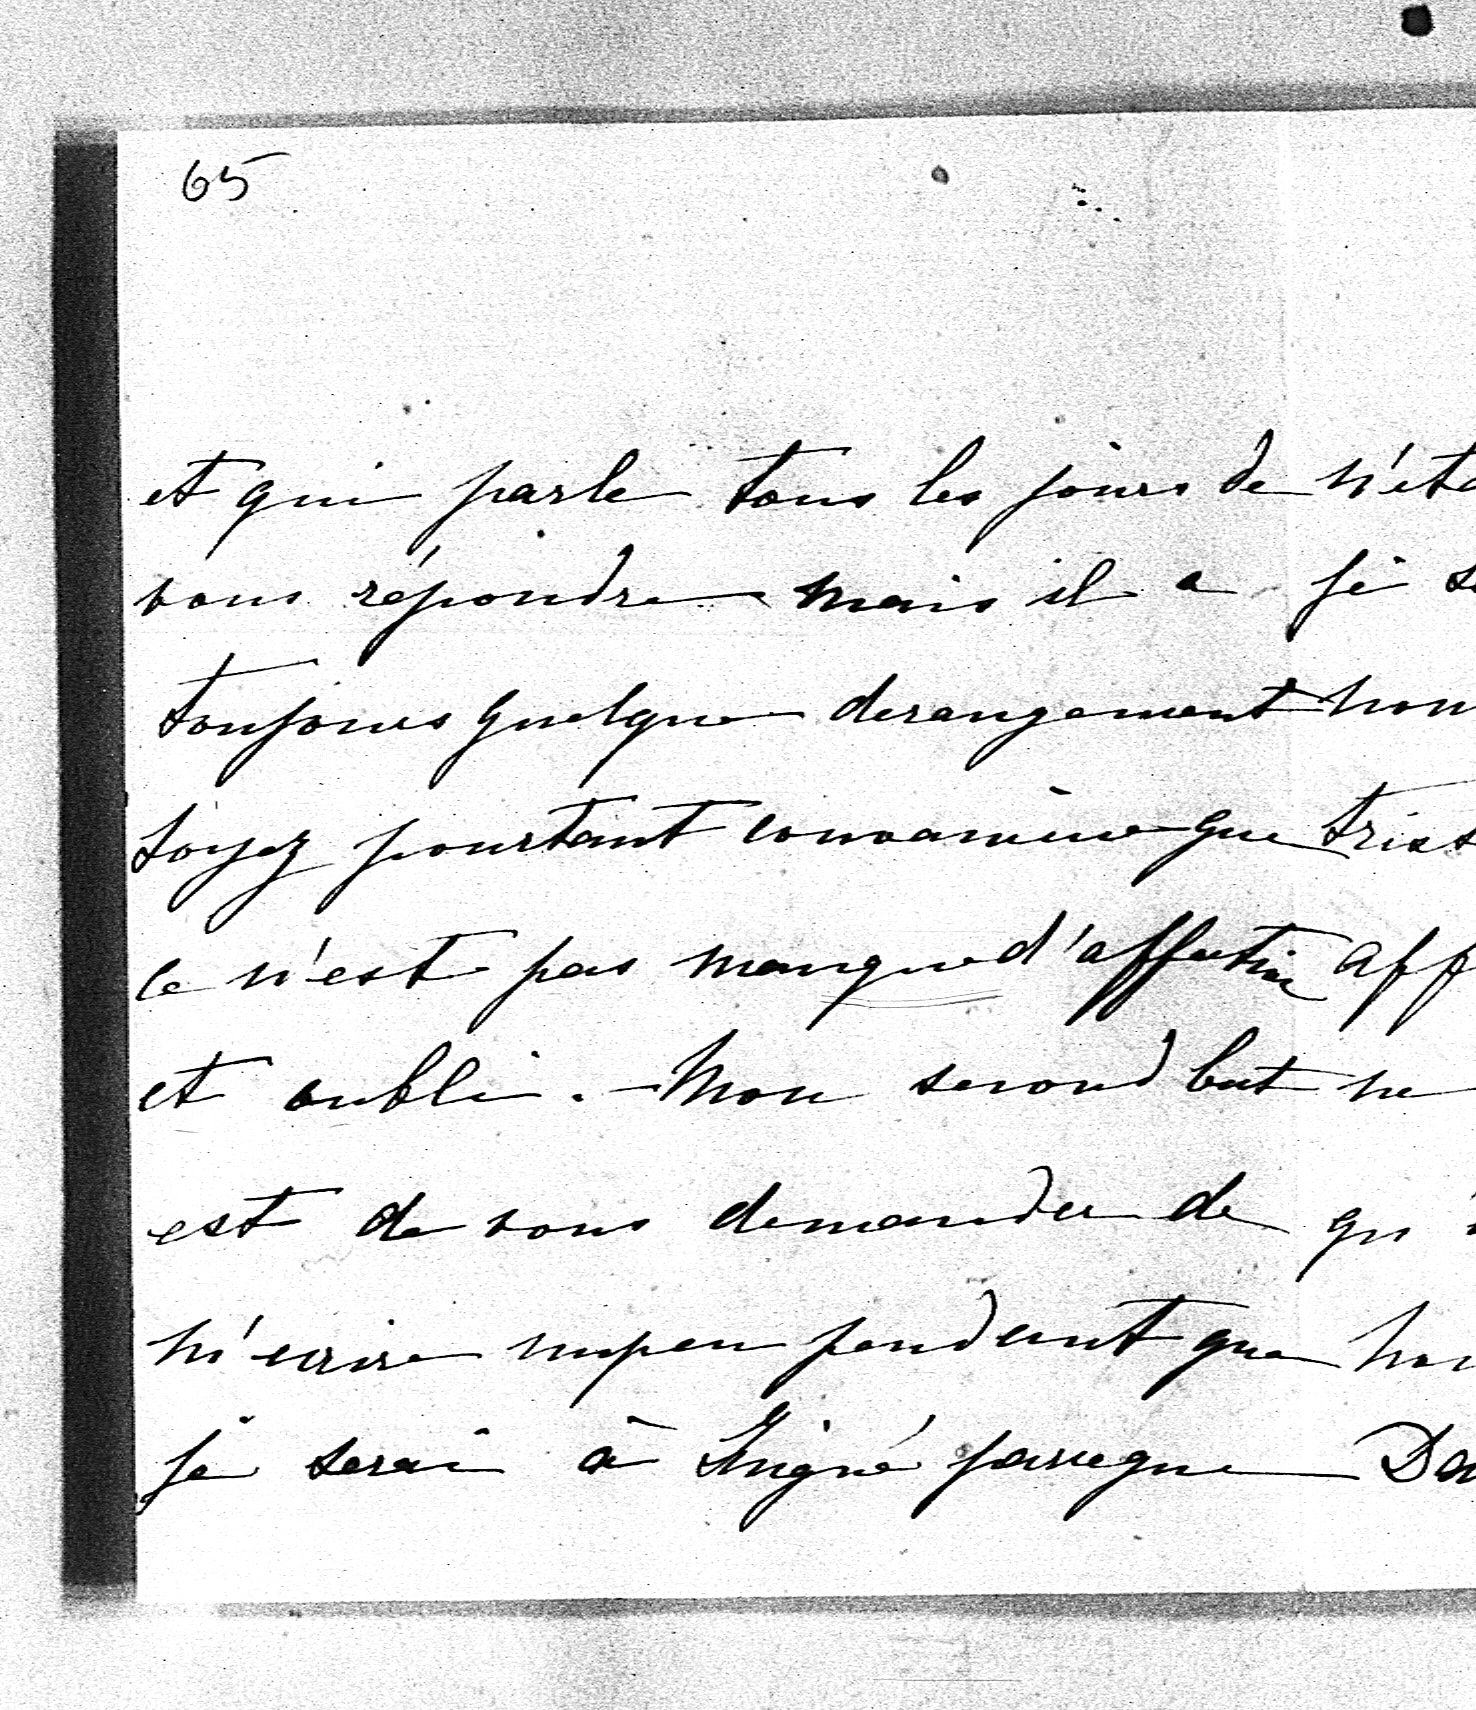 65
et qui parle tous les jours de n'éta
vous répondre mais il a je s
toujours quelque derangement nou
soyez pourtant convaincue que trist
ce n'est pas manque d'affection aff
et oubli. - Mon second but ne
est de vous demander de qu'
m'ecrire un peu pendant que nou
je serai à parceque Da